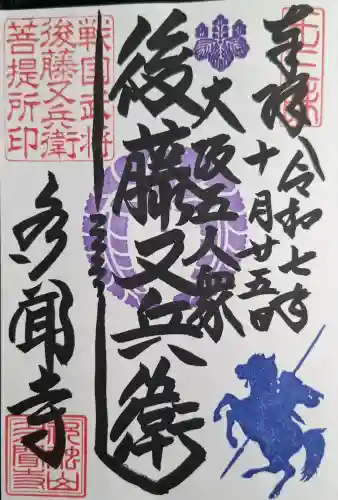 奉拝
令和七年
十月廿五日
大阪五人衆
後藤又兵衛
戦国武将
後藤又兵衛
菩提所印
多聞寺